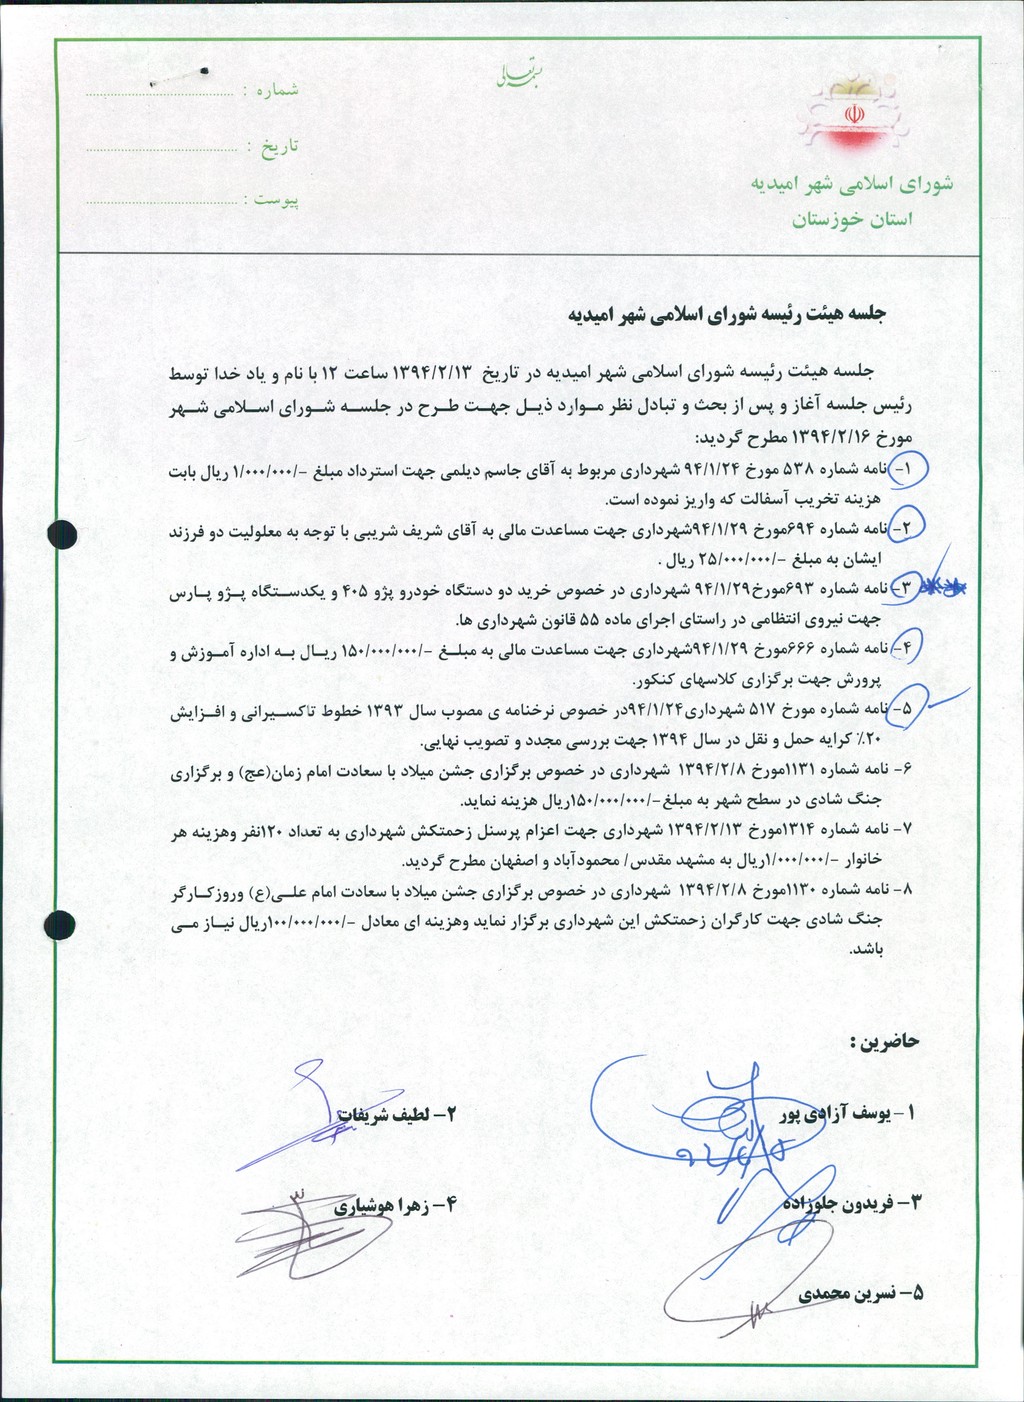 بسمه تعالی
شورای اسلامی شهر امیدیه
استان خوزستان
شماره :
تاریخ :
پیوست :
جلسه هیئت رئیسه شورای اسلامی شهر امیدیه
جلسه هیئت رئیسه شورای اسلامی شهر امیدیه در تاریخ ۱۳۹۴/۲/۱۳ ساعت ۱۲ با نام و یاد خدا توسط
رئیس جلسه آغاز و پس از بحث و تبادل نظر موارد ذیل جهت طرح در جلسه شورای اسلامی شهر
مورخ ۱۳۹۴/۲/۱۶ مطرح گردید:
۱- نامه شماره ۵۳۸ مورخ ۹۴/۱/۲۴ شهرداری مربوط به آقای جاسم دیلمی جهت استرداد مبلغ -/۱/۰۰۰/۰۰۰ ریال بابت
هزینه تخریب آسفالت که واریز نموده است.
۲- نامه شماره ۶۹۴مورخ ۹۴/۱/۲۹شهرداری جهت مساعدت مالی به آقای شریف شریبی با توجه به معلولیت دو فرزند
ایشان به مبلغ -/۲۵/۰۰۰/۰۰۰ ریال .
۳- نامه شماره ۶۹۳مورخ۹۴/۱/۲۹ شهرداری در خصوص خرید دو دستگاه خودرو پژو ۴۰۵ و یکدستگاه پژو پارس
جهت نیروی انتظامی در راستای اجرای ماده ۵۵ قانون شهرداری ها.
۴- نامه شماره ۶۶۶مورخ ۹۴/۱/۲۹شهرداری جهت مساعدت مالی به مبلغ -/۱۵۰/۰۰۰/۰۰۰ ریال به اداره آموزش و
پرورش جهت برگزاری کلاسهای کنکور.
۵- نامه شماره مورخ ۵۱۷ شهرداری۹۴/۱/۲۴در خصوص نرخنامه ی مصوب سال ۱۳۹۳ خطوط تاکسیرانی و افزایش
۲۰٪ کرایه حمل و نقل در سال ۱۳۹۴ جهت بررسی مجدد و تصویب نهایی.
۶- نامه شماره ۱۱۳۱مورخ ۱۳۹۴/۲/۸ شهرداری در خصوص برگزاری جشن میلاد با سعادت امام زمان(عج) و برگزاری
جنگ شادی در سطح شهر به مبلغ-/۱۵۰/۰۰۰/۰۰۰ریال هزینه نماید.
۷- نامه شماره ۱۳۱۴مورخ ۱۳۹۴/۲/۱۳ شهرداری جهت اعزام پرسنل زحمتکش شهرداری به تعداد ۱۲۰نفر وهزینه هر
خانوار -/۱/۰۰۰/۰۰۰ریال به مشهد مقدس/ محمودآباد و اصفهان مطرح گردید.
۸- نامه شماره ۱۱۳۰مورخ ۱۳۹۴/۲/۸ شهرداری در خصوص برگزاری جشن میلاد با سعادت امام علی(ع) وروزکارگر
جنگ شادی جهت کارگران زحمتکش این شهرداری برگزار نماید وهزینه ای معادل -/۱۰۰/۰۰۰/۰۰۰ریال نیاز می
باشد.
حاضرین :
۱- یوسف آزادی پور
۲- لطیف شریفات
۳- فریدون جلوزاده
۴- زهرا هوشیاری
۵- نسرین محمدی